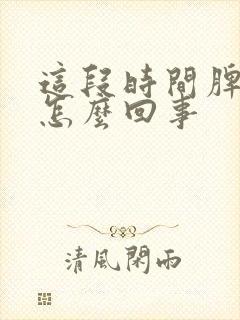 這段時間脾
怎麼回事
清風閑雨